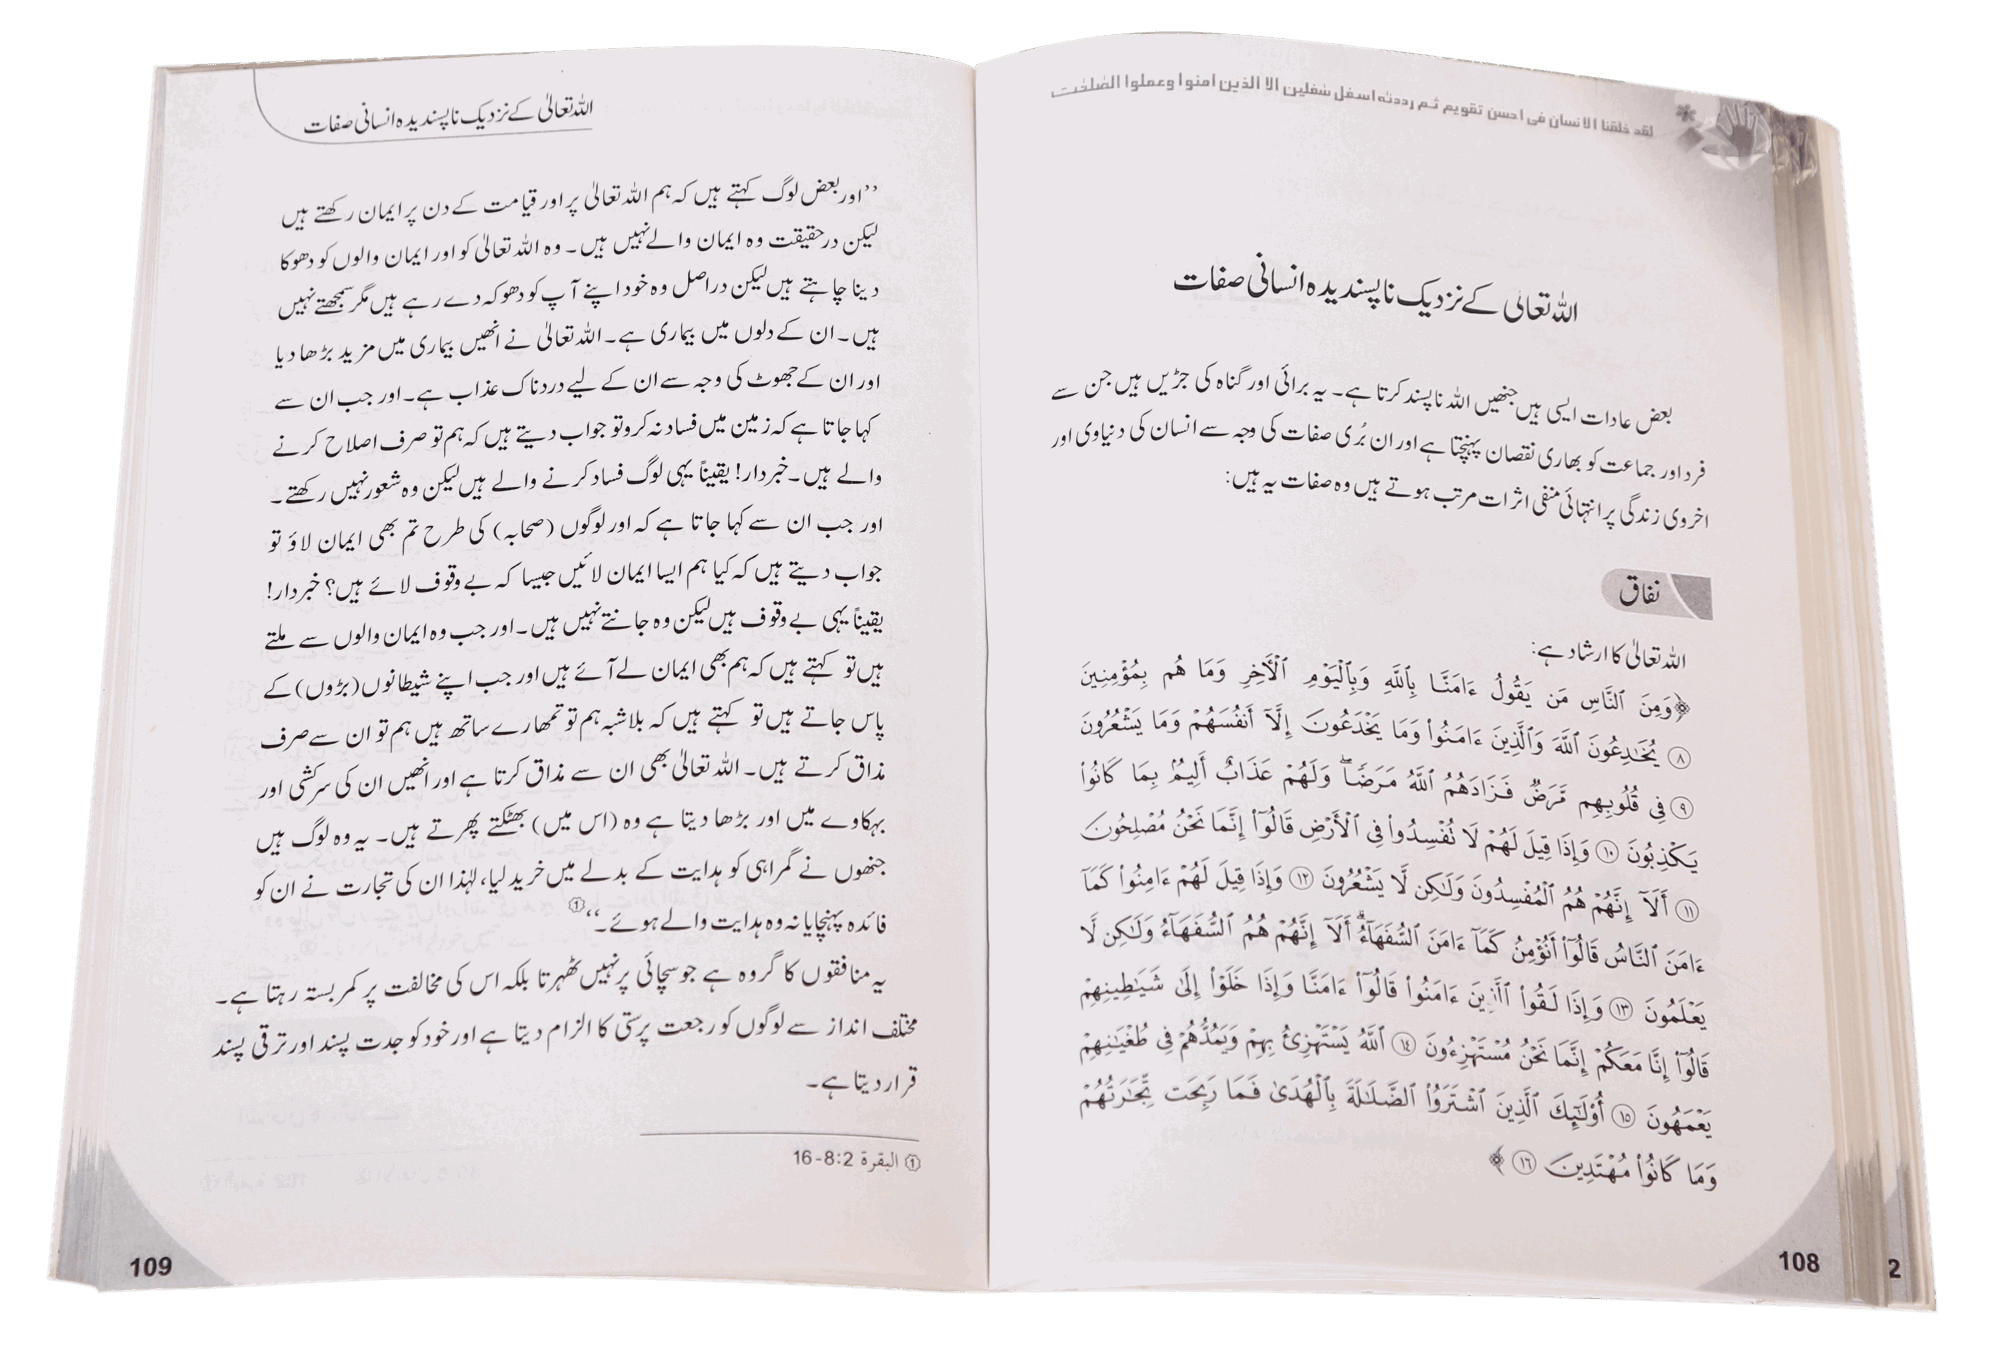 لقد خلقنا الانسان فی احسن تقویم ثم رددنٰه اسفل سٰفلین الا الذین امنوا وعملوا الصٰلحٰت
اللہ تعالیٰ کے نزدیک ناپسندیدہ انسانی صفات
بعض عادات ایسی ہیں جنھیں اللہ ناپسند کرتا ہے۔ یہ برائی اور گناہ کی جڑیں ہیں جن سے
فرد اور جماعت کو بھاری نقصان پہنچتا ہے اور ان بُری صفات کی وجہ سے انسان کی دنیاوی اور
اخروی زندگی پر انتہائی منفی اثرات مرتب ہوتے ہیں وہ صفات یہ ہیں:
نفاق
اللہ تعالیٰ کا ارشاد ہے:
﴿وَمِنَ ٱلنَّاسِ مَن يَقُولُ ءَامَنَّا بِٱللَّهِ وَبِٱلْيَوْمِ ٱلْأَخِرِ وَمَا هُم بِمُؤْمِنِينَ
⑧ يُخَٰدِعُونَ ٱللَّهَ وَٱلَّذِينَ ءَامَنُوا۟ وَمَا يَخْدَعُونَ إِلَّآ أَنفُسَهُمْ وَمَا يَشْعُرُونَ
⑨ فِى قُلُوبِهِم مَّرَضٌ فَزَادَهُمُ ٱللَّهُ مَرَضًا ۖ وَلَهُمْ عَذَابٌ أَلِيمٌۢ بِمَا كَانُوا۟
يَكْذِبُونَ ⑩ وَإِذَا قِيلَ لَهُمْ لَا تُفْسِدُوا۟ فِى ٱلْأَرْضِ قَالُوٓا۟ إِنَّمَا نَحْنُ مُصْلِحُونَ
⑪ أَلَآ إِنَّهُمْ هُمُ ٱلْمُفْسِدُونَ وَلَٰكِن لَّا يَشْعُرُونَ ⑫ وَإِذَا قِيلَ لَهُمْ ءَامِنُوا۟ كَمَآ
ءَامَنَ ٱلنَّاسُ قَالُوٓا۟ أَنُؤْمِنُ كَمَآ ءَامَنَ ٱلسُّفَهَآءُ ۗ أَلَآ إِنَّهُمْ هُمُ ٱلسُّفَهَآءُ وَلَٰكِن لَّا
يَعْلَمُونَ ⑬ وَإِذَا لَقُوا۟ ٱلَّذِينَ ءَامَنُوا۟ قَالُوٓا۟ ءَامَنَّا وَإِذَا خَلَوْا۟ إِلَىٰ شَيَٰطِينِهِمْ
قَالُوٓا۟ إِنَّا مَعَكُمْ إِنَّمَا نَحْنُ مُسْتَهْزِءُونَ ⑭ ٱللَّهُ يَسْتَهْزِئُ بِهِمْ وَيَمُدُّهُمْ فِى طُغْيَٰنِهِمْ
يَعْمَهُونَ ⑮ أُو۟لَٰٓئِكَ ٱلَّذِينَ ٱشْتَرَوُا۟ ٱلضَّلَٰلَةَ بِٱلْهُدَىٰ فَمَا رَبِحَت تِّجَٰرَتُهُمْ
وَمَا كَانُوا۟ مُهْتَدِينَ ⑯﴾
108
2
اللہ تعالیٰ کے نزدیک ناپسندیدہ انسانی صفات
’’اور بعض لوگ کہتے ہیں کہ ہم اللہ تعالیٰ پر اور قیامت کے دن پر ایمان رکھتے ہیں
لیکن درحقیقت وہ ایمان والے نہیں ہیں۔ وہ اللہ تعالیٰ کو اور ایمان والوں کو دھوکا
دینا چاہتے ہیں لیکن دراصل وہ خود اپنے آپ کو دھوکہ دے رہے ہیں مگر سمجھتے نہیں
ہیں۔ ان کے دلوں میں بیماری ہے۔ اللہ تعالیٰ نے انھیں بیماری میں مزید بڑھا دیا
اور ان کے جھوٹ کی وجہ سے ان کے لیے دردناک عذاب ہے۔ اور جب ان سے
کہا جاتا ہے کہ زمین میں فساد نہ کرو تو جواب دیتے ہیں کہ ہم تو صرف اصلاح کرنے
والے ہیں۔ خبردار! یقیناً یہی لوگ فساد کرنے والے ہیں لیکن وہ شعور نہیں رکھتے۔
اور جب ان سے کہا جاتا ہے کہ اور لوگوں (صحابہ) کی طرح تم بھی ایمان لاؤ تو
جواب دیتے ہیں کہ کیا ہم ایسا ایمان لائیں جیسا کہ بے وقوف لائے ہیں؟ خبردار!
یقیناً یہی بے وقوف ہیں لیکن وہ جانتے نہیں ہیں۔ اور جب وہ ایمان والوں سے ملتے
ہیں تو کہتے ہیں کہ ہم بھی ایمان لے آئے ہیں اور جب اپنے شیطانوں (بڑوں) کے
پاس جاتے ہیں تو کہتے ہیں کہ بلاشبہ ہم تو تمھارے ساتھ ہیں ہم تو ان سے صرف
مذاق کرتے ہیں۔ اللہ تعالیٰ بھی ان سے مذاق کرتا ہے اور انھیں ان کی سرکشی اور
بہکاوے میں اور بڑھا دیتا ہے وہ (اس میں) بھٹکتے پھرتے ہیں۔ یہ وہ لوگ ہیں
جنھوں نے گمراہی کو ہدایت کے بدلے میں خرید لیا، لہٰذا ان کی تجارت نے ان کو
فائدہ پہنچایا نہ وہ ہدایت والے ہوئے۔‘‘①
یہ منافقوں کا گروہ ہے جو سچائی پر نہیں ٹھہرتا بلکہ اس کی مخالفت پر کمربستہ رہتا ہے۔
مختلف انداز سے لوگوں کو رجعت پرستی کا الزام دیتا ہے اور خود کو جدت پسند اور ترقی پسند
قرار دیتا ہے۔
① البقرة 2:8-16
109